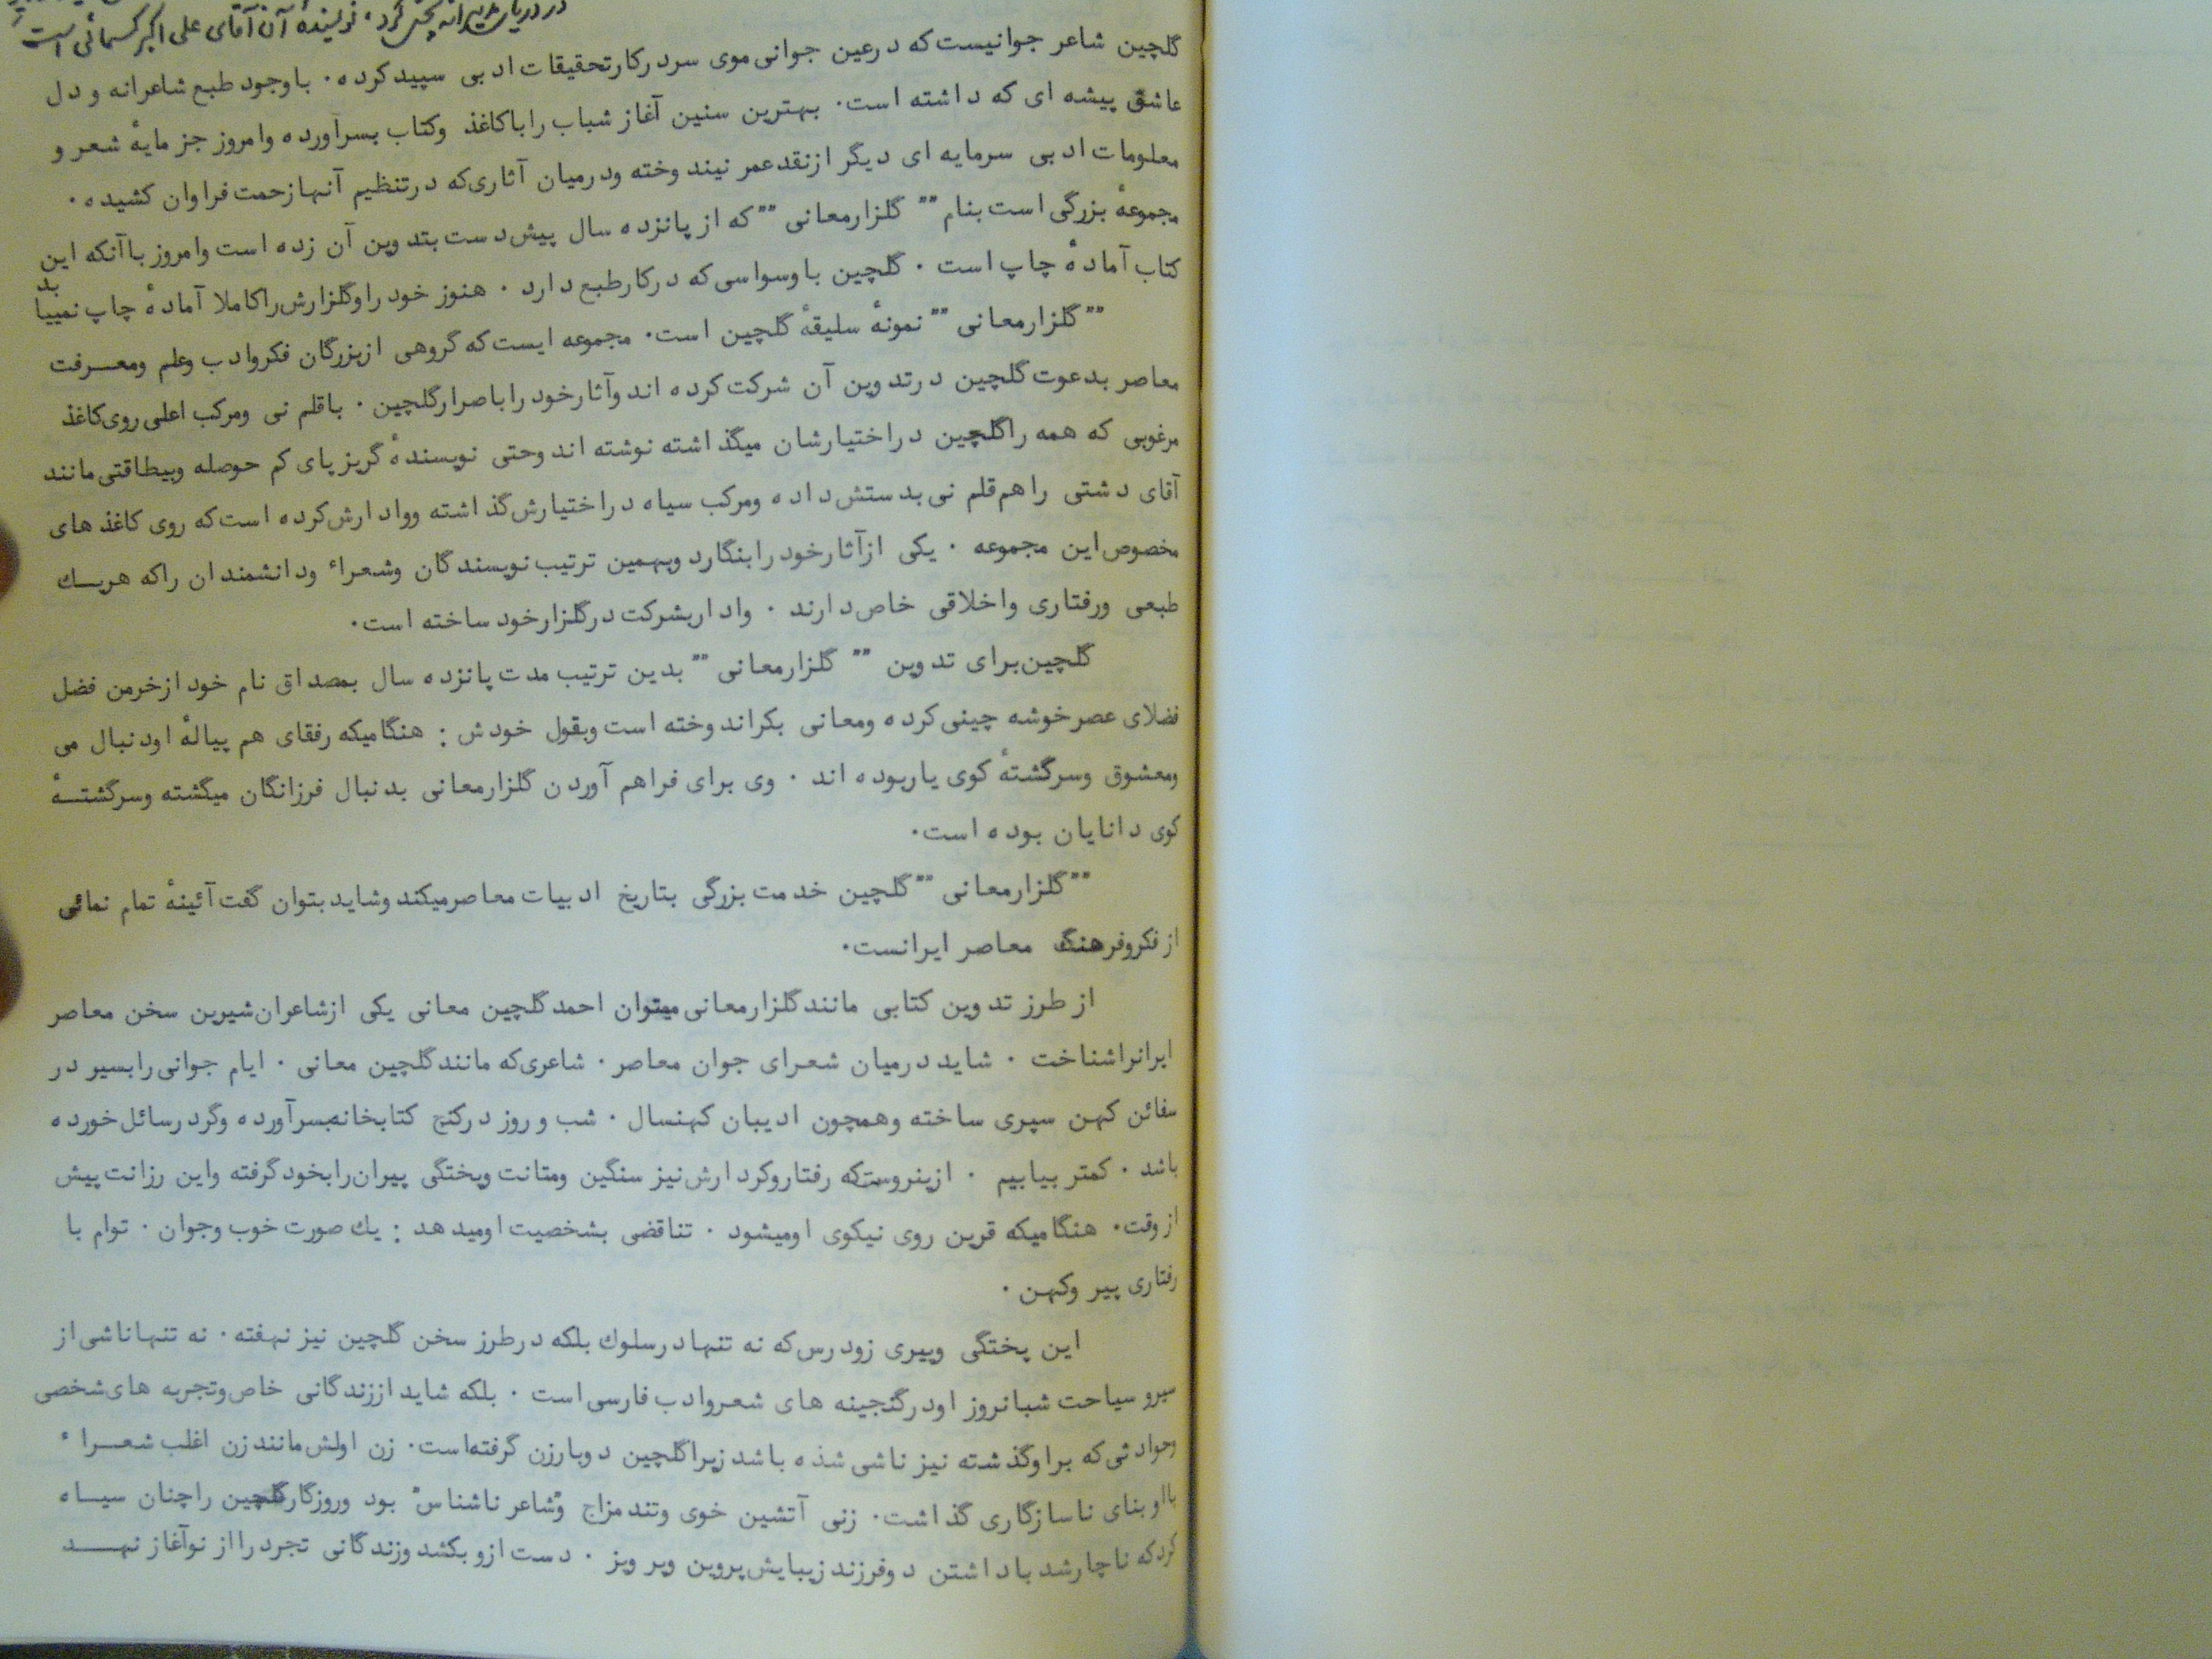 نویسنده آن آقای علی اکبر کسمائی است
گلچین شاعر جوانیست که درعین جوانی موی سر درکار تحقیقات ادبی سپید کرده۰ باوجود طبع شاعرانه و دل
عاشق پیشه ای که داشته است۰ بهترین سنین آغاز شباب را باکاغذ وکتاب بسرآورده وامروز جز مایهٔ شعر و
معلومات ادبی سرمایه ای دیگر ازنقد عمر نیند وخته ودرمیان آثاری که درتنظیم آنها زحمت فراوان کشیده ۰
مجموعهٔ بزرگی است بنام "" گلزارمعانی "" که از پانزده سال پیش دست بتدوین آن زده است وامروز باآنکه این
کتاب آمادهٔ چاپ است ۰ گلچین باوسواسی که درکار طبع دارد ۰ هنوز خود را وگلزارش را کاملا آمادهٔ چاپ نمییابد
"" گلزارمعانی "" نمونهٔ سلیقهٔ گلچین است۰ مجموعه ایست که گروهی ازبزرگان فکروادب وعلم ومعـرفت
معاصر بدعوت گلچین درتدوین آن شرکت کرده اند وآثارخود را باصرار گلچین ۰ باقلم نی ومرکب اعلی روی کاغذ
مرغوبی که همه را گلچین دراختیارشان میگذاشته نوشته اند وحتی نویسندهٔ گریزپای کم حوصله وبیطاقتی مانند
آقای دشتی را هم قلم نی بدستش داده ومرکب سیاه دراختیارش گذاشته ووادارش کرده است که روی کاغذهای
مخصوص این مجموعه ۰ یکی ازآثارخود را بنگارد وبهمین ترتیب نویسندگان وشعراء ودانشمندان راکه هریـك
طبعی ورفتاری واخلاقی خاص دارند ۰ وادار بشرکت درگلزارخود ساخته است۰
گلچین برای تدوین "" گلزارمعانی "" بدین ترتیب مدت پانزده سال بمصداق نام خود ازخرمن فضل
فضلای عصر خوشه چینی کرده ومعانی بکراندوخته است وبقول خودش : هنگامیکه رفقای هم پیالهٔ اودنبال می
ومعشوق وسرگشتهٔ کوی یاربوده اند ۰ وی برای فراهم آوردن گلزارمعانی بدنبال فرزانگان میگشته وسرگشتـهٔ
کوی دانایان بوده است۰
"" گلزارمعانی "" گلچین خدمت بزرگی بتاریخ ادبیات معاصرمیکند وشاید بتوان گفت آئینهٔ تمام نمائی
از فکروفرهنگ معاصر ایرانست۰
از طرز تدوین کتابی مانند گلزارمعانی میتوان احمد گلچین معانی یکی ازشاعران شیرین سخن معاصر
ایرانراشناخت ۰ شاید درمیان شعرای جوان معاصر۰ شاعری که مانند گلچین معانی ۰ ایام جوانی رابسیر در
سفائن کهن سپری ساخته وهمچون ادیبان کهنسال ۰ شب و روز درکنج کتابخانه بسرآورده وگرد رسائل خورده
باشد ۰ کمتر بیابیم ۰ ازینروست که رفتاروکردارش نیز سنگین ومتانت وپختگی پیران رابخود گرفته واین رزانت پیش
ازوقت۰ هنگامیکه قرین روی نیکوی اومیشود ۰ تناقضی بشخصیت اومیدهد : یك صورت خوب وجوان ۰ توام با
رفتاری پیر وکهن ۰
این پختگی وپیری زودرس که نه تنها درسلوك بلکه درطرز سخن گلچین نیز نهفته۰ نه تنها ناشی از
سیرو سیاحت شبانروز اودرگنجینه های شعروادب فارسی است ۰ بلکه شاید اززندگانی خاص وتجربه های شخصی
وحوادثی که براوگذشته نیز ناشی شده باشد زیرا گلچین دوبارزن گرفته است۰ زن اولش مانند زن اغلب شعـراء
بااو بنای ناسازگاری گذاشت۰ زنی آتشین خوی وتندمزاج و"شاعر ناشناس" بود وروزگارگلچین راچنان سیـاه
کردکه ناچارشد باداشتن دوفرزند زیبایش پروین وپرویز ۰ دست ازو بکشد وزندگانی تجرد رااز نوآغاز نهـد